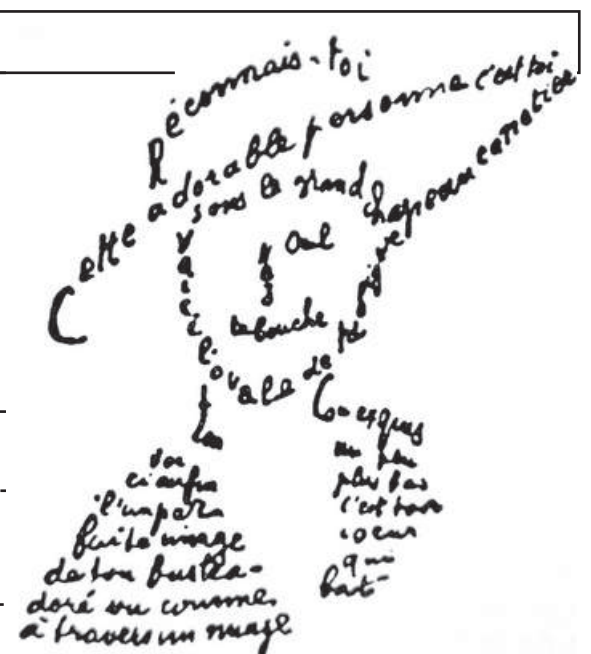 Réconnais-toi
Cette adorable personne c'est toi
sous le grand chapeau canotier
Oeil
Nez
la bouche
Voici l'ovale de ta figure
Ton
Cou exquis
Voi
ci enfin
l'impar
faite image
de ton buste a-
doré vu comme
à travers un nuage
un peu
plus bas
c'est ton
coeur
qui
bat